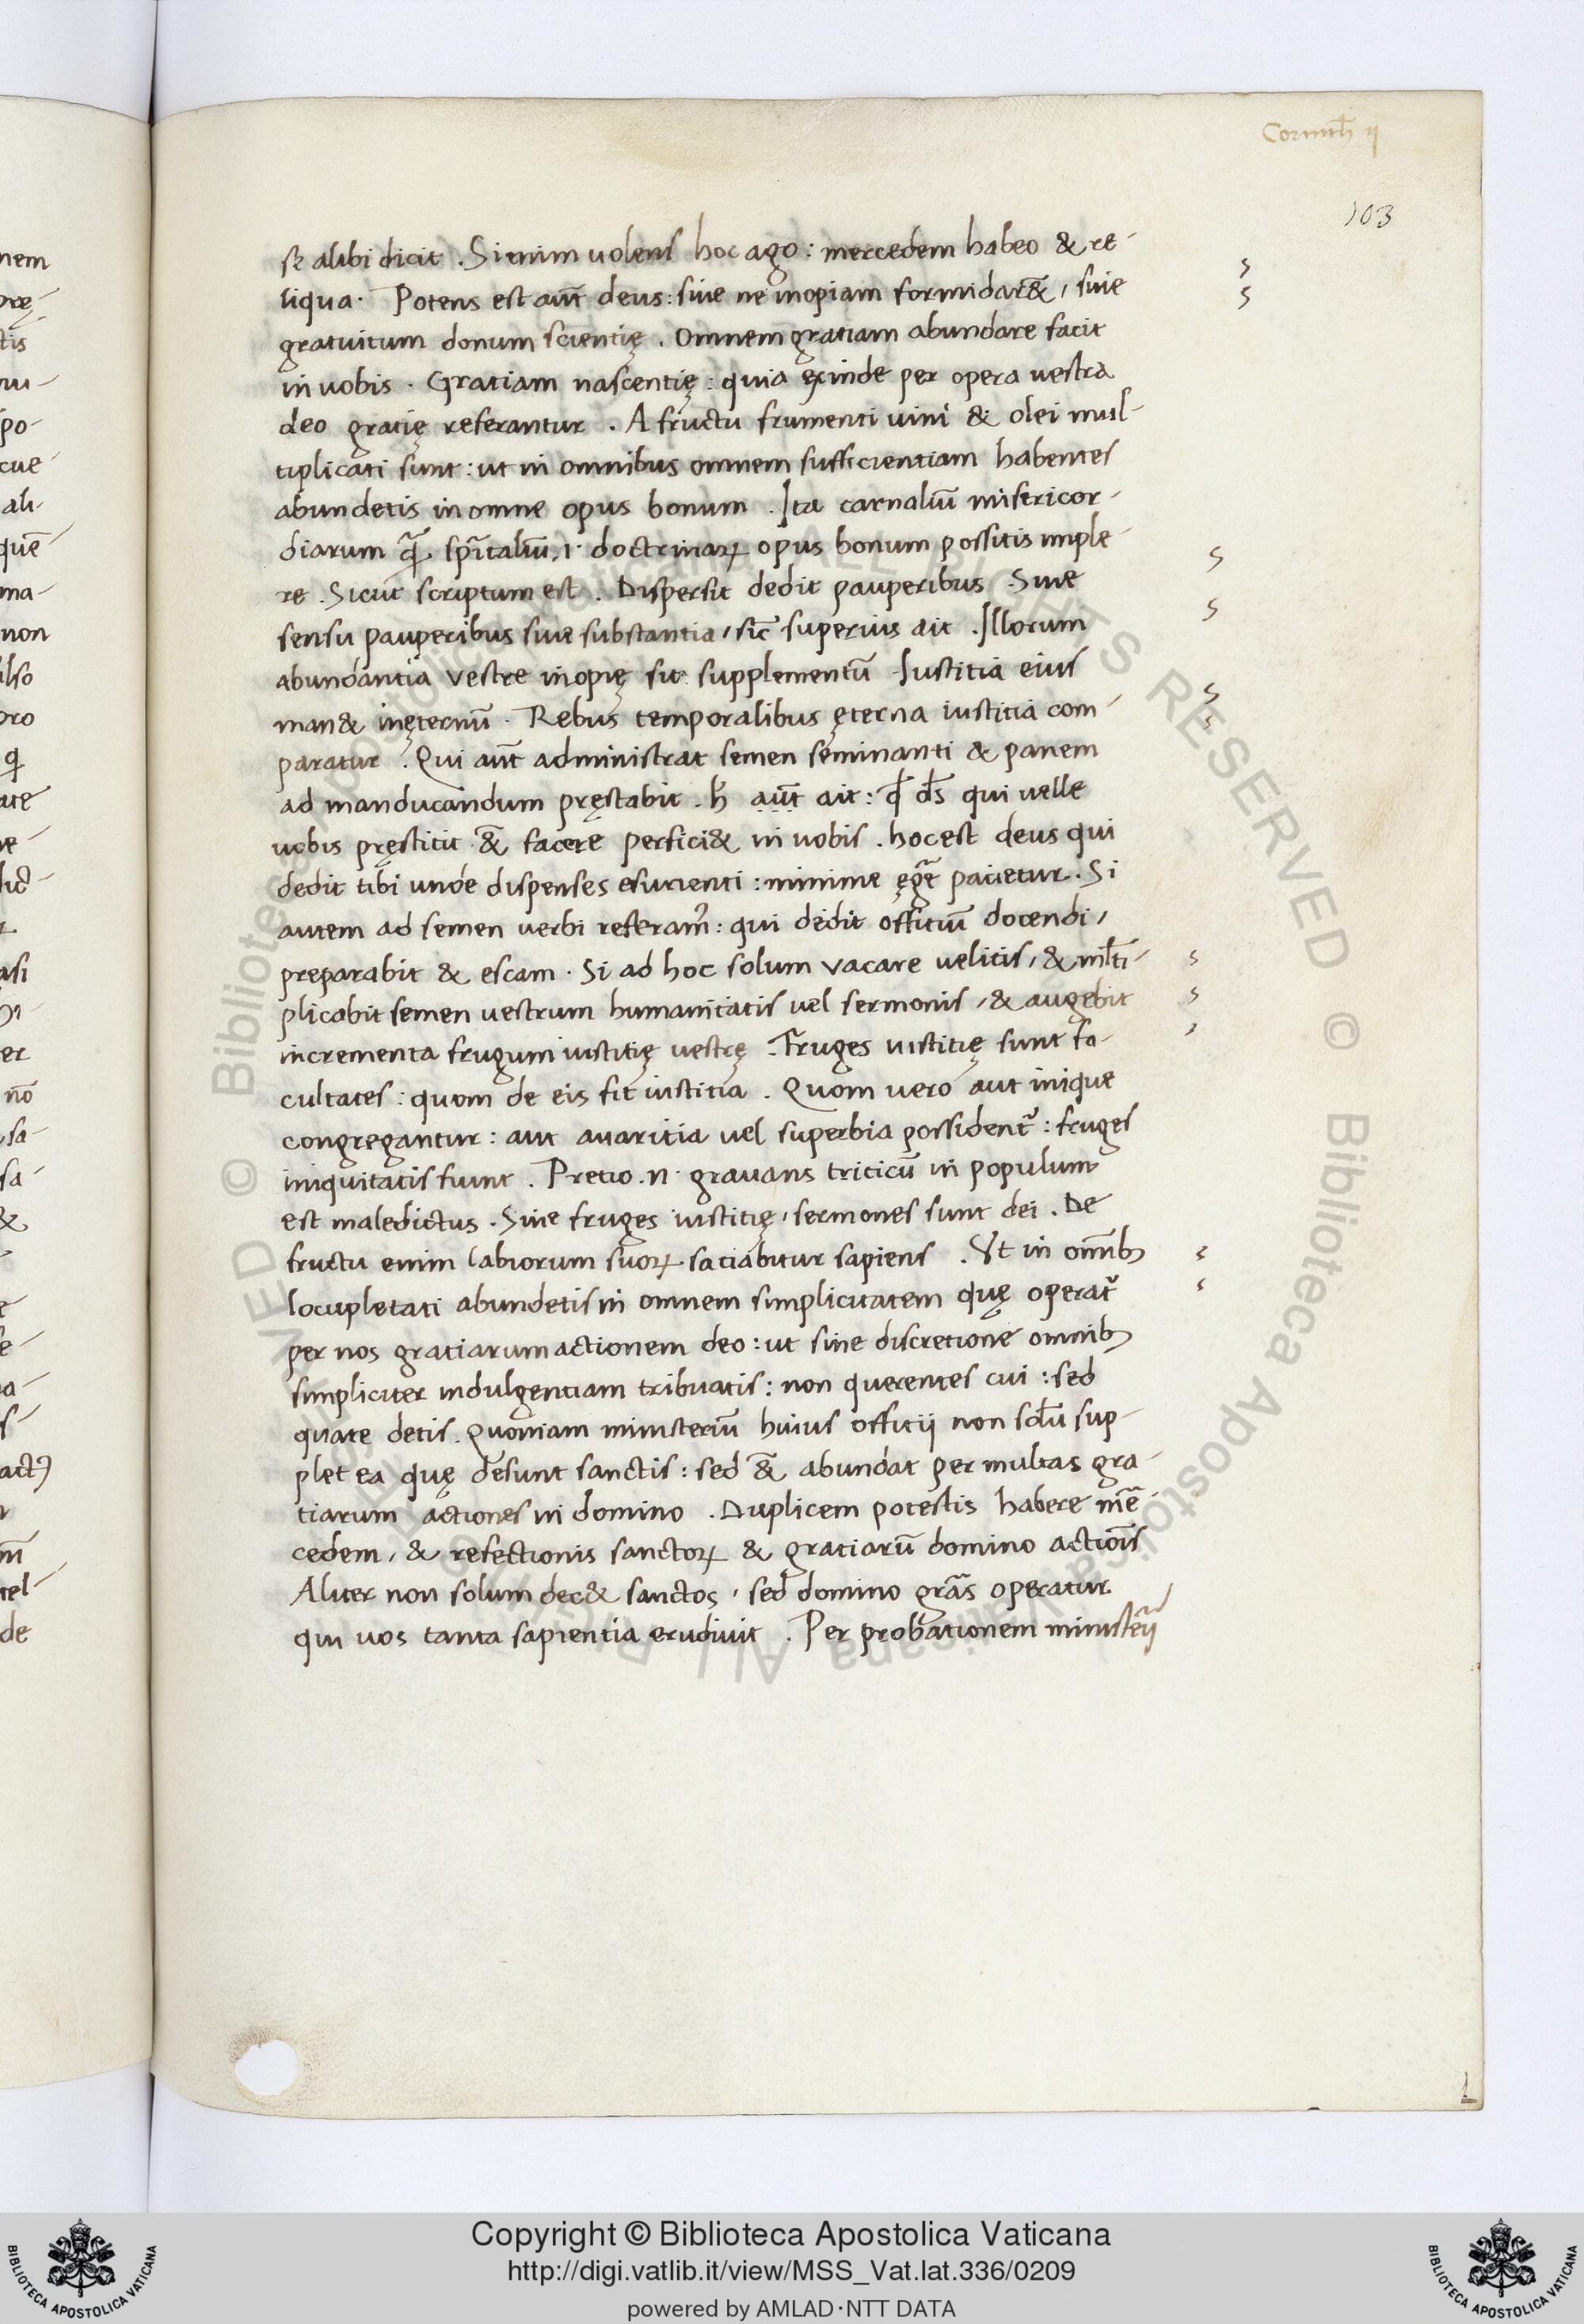 Corinth̄ ij
103
sẹ alibi dicit . Si enim uolens hoc ago : mercedem habeo & re-
liqua . Potens est aut̄ deus : siue ne inopiam formidar&, siue
gratuitum donum scientię . Omnem gratiam abundare facit
in uobis . Gratiam nascentię : quia exinde per opera uestra
deo gratię referantur . A fructu frumenti uini & olei mul-
tiplicati sunt : ut in omnibus omnem sufficientiam habentes
abundetis in omne opus bonum . Ita carnaliū misericor-
diarum spiritaliū .i. doctrinaꝝ opus bonum possitis imple-
re . Sicut scriptum est . Dispersit dedit pauperibus . Siue
sensu pauperibus siue substantia, sic̄ superius ait . Illorum
abundantia vestre inopię sit supplementū . Iustitia eius
man& inęternū . Rebus temporalibus ęterna iustitia com-
paratur . Qui aut̄ administrat semen seminanti & panem
ad manducandum pręstabit . h̄ aut̄ ait : qđ ds̄ qui uelle
uobis pręstitit &̄ facere perfici& in uobis . hoc est deus qui
dedit tibi unde dispenses esurienti : minime ęgēr patietur . Si
autem ad semen uerbi referam᷒ : qui dedit offitiū docendi,
preparabit & escam . Si ad hoc solum vacare uelitis, & ml̄ti-
plicabit semen uestrum humanitatis uel sermonis, & augebit
incrementa frugum iustitię uestrę . Fruges iustitię sunt fa-
cultates : quom de eis fit iustitia . Quom uero aut inique
congregantur : aut auaritia uel superbia possident᷑ : fruges
iniquitatis fiunt . Pretio .n. grauans triticū in populum
est maledictus . Siue fruges iustitię, sermones sunt dei . De
fructu enim labiorum suoꝝ satiabitur sapiens . Vt in omīb;
locupletati abundetis in omnem simplicitatem quę operat᷑
per nos gratiarum actionem deo : ut sine discretione omnib;
simpliciter indulgentiam tribuatis : non querentes cui : sed
quare detis . Quoniam ministeriū huius offitij non solū sup-
plet ea quę desunt sanctis : sed &̄ abundat per multas gra-
tiarum actiones in domino . Duplicem potestis habere mer̄-
cedem, & refectionis sanctoꝝ & gratiarū domino actiōis
Aliter non solum dec& sanctos, sed domino grās operatur
qui uos tanta sapientia erudiuit . Per probationem ministerij
Copyright © Biblioteca Apostolica Vaticana
http://digi.vatlib.it/view/MSS_Vat.lat.336/0209
powered by AMLAD·NTT DATA